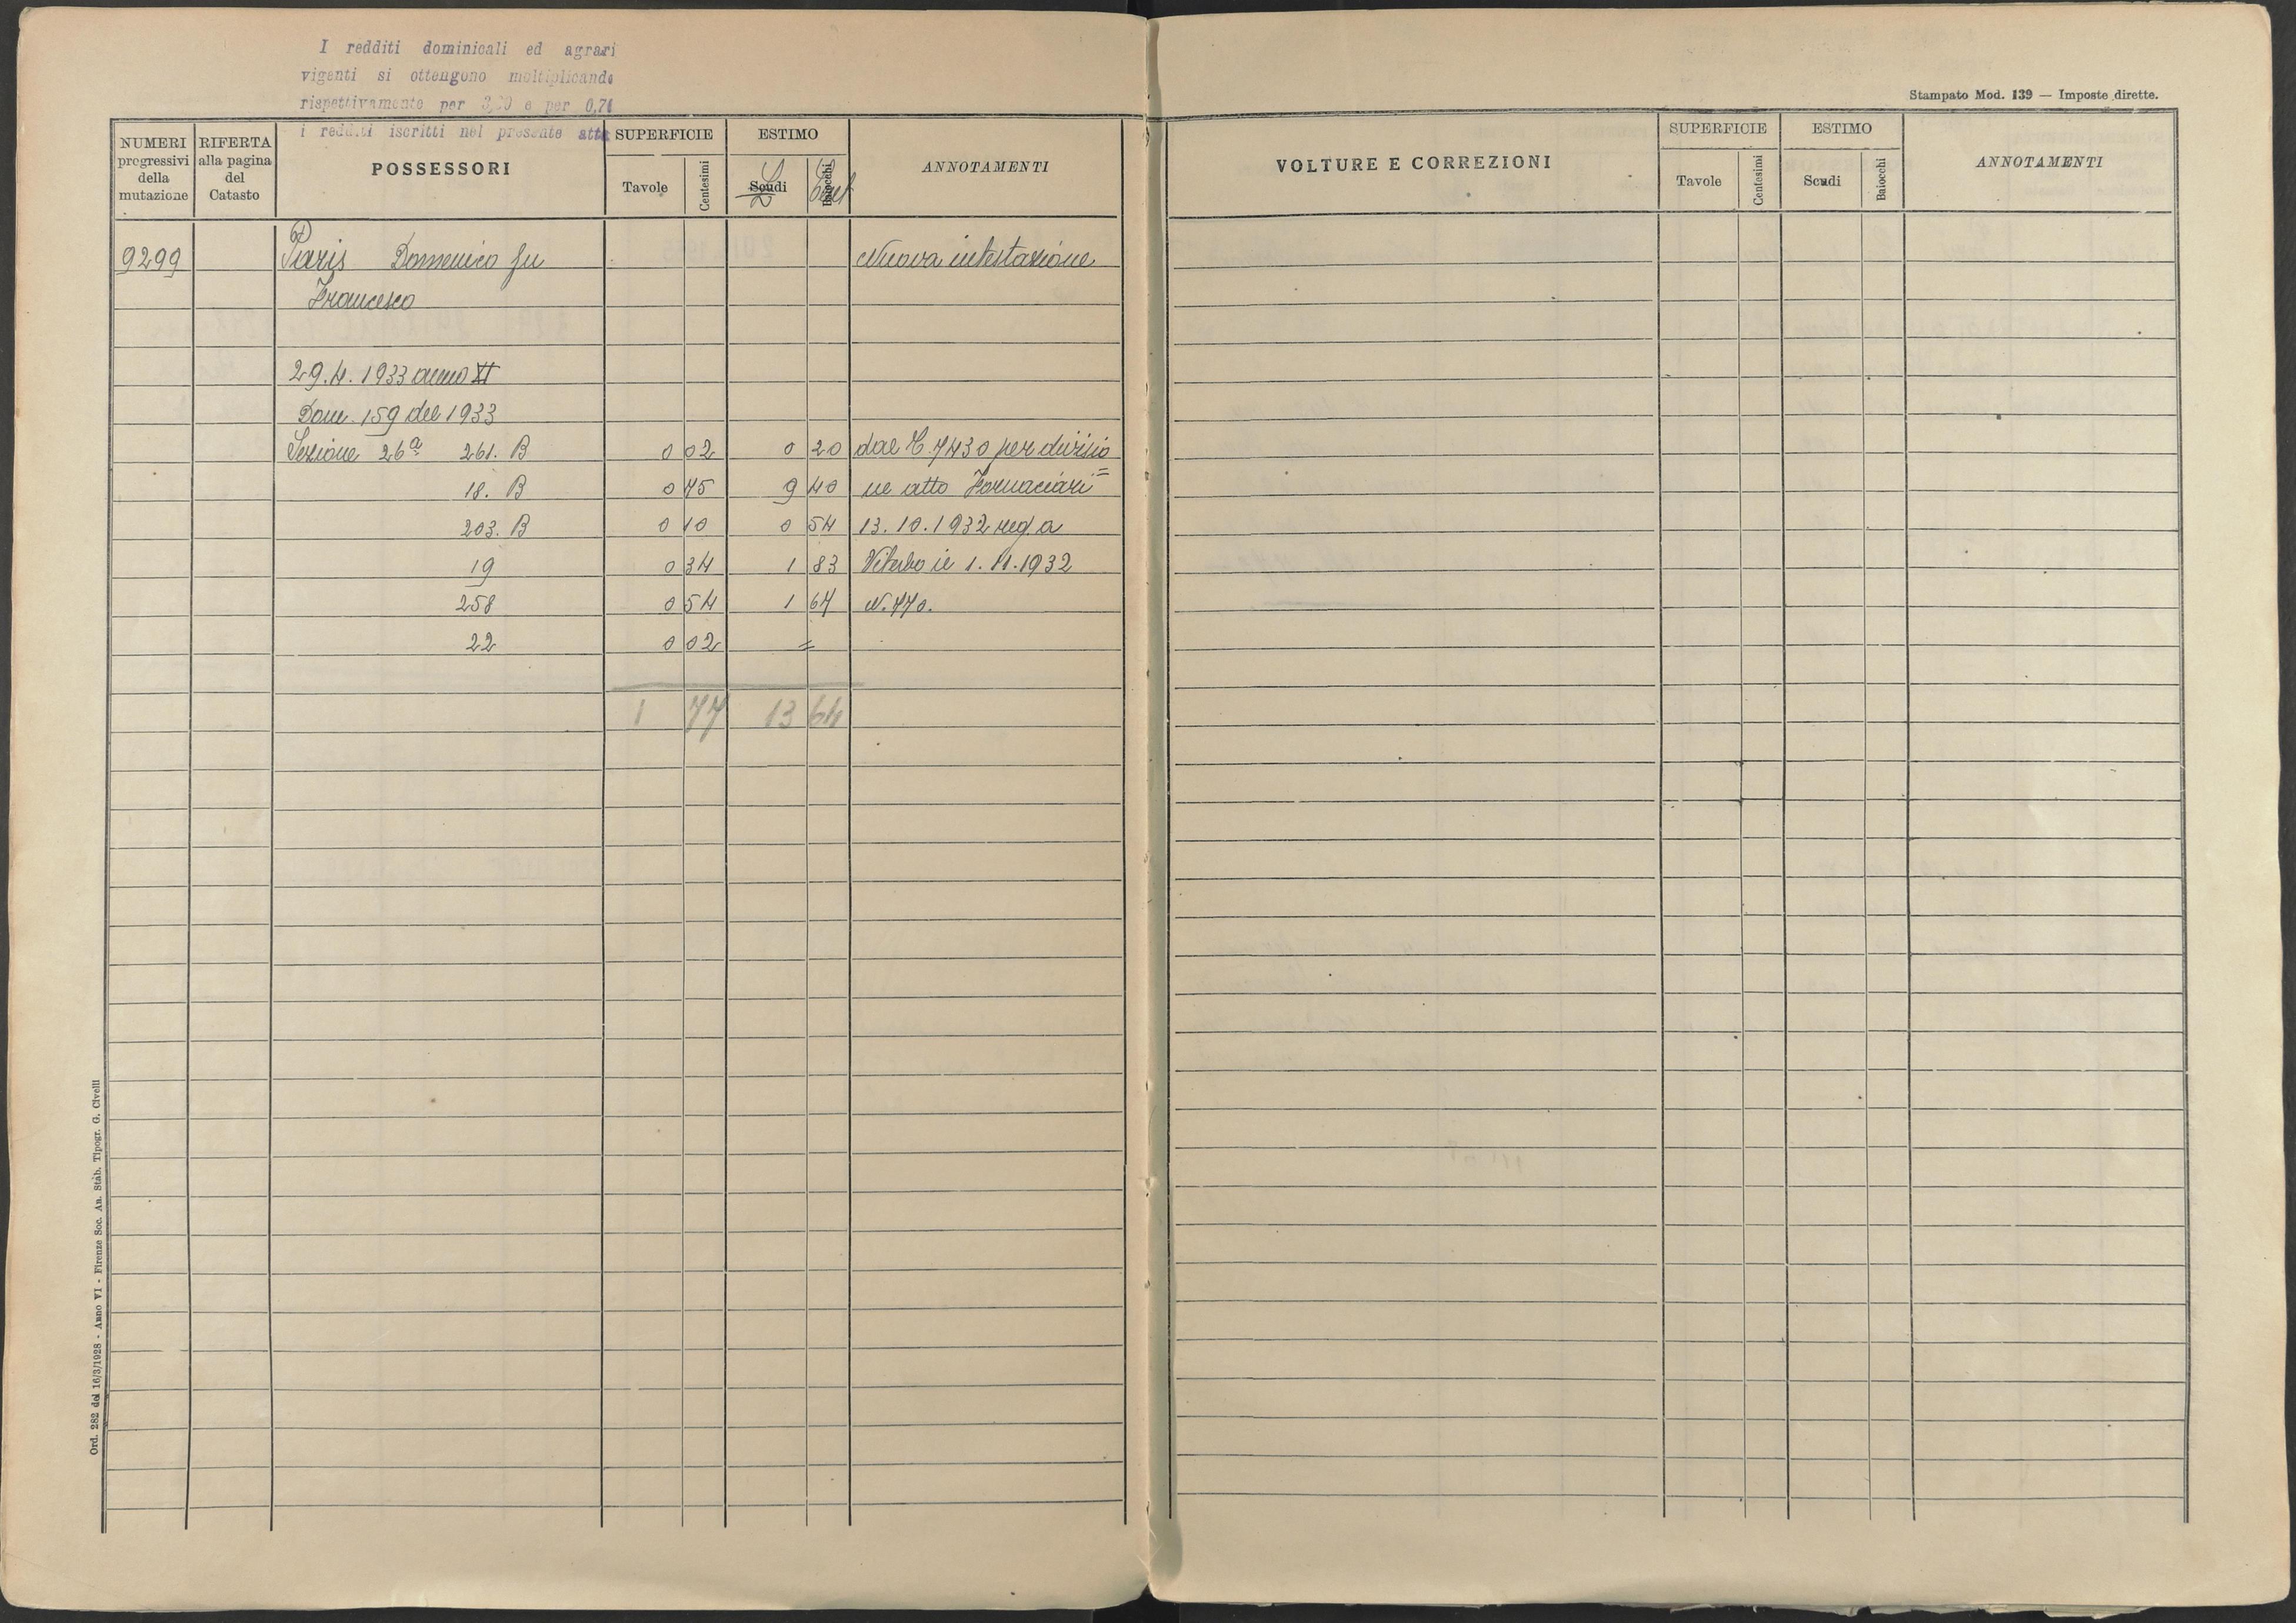 I redditi dominicali ed agrari
vigenti si ottengono moltiplicando
rispettivamente per e per 0,71
i redditi iscritti nel presente atto
NUMERI progressivi della mutazione
RIFERTA alla pagina del Catasto
POSSESSORI
SUPERFICIE
Tavole
Centesimi
ESTIMO
Scudi L
Baiocchi Cent
ANNOTAMENTI
9299 Paris Domenico fu Nuova intestazione
Francesco
29.4.1933 anno XI
Dom. 159 del 1933
Sezione 26ª 261. B 0 02 0 20 dal C. 7430 per divisio
18. B 0 75 9 40 ne atto Fornaciari =
203. B 0 10 0 54 13.10.1932 reg. a
19 0 34 1 83 Viterbo il 1.11.1932
258 0 54 1 67 N. 770.
22 0 02 =
1 77 13 64
Ord. 282 del 16/3/1928 - Anno VI - Firenze Soc. An. Stab. Tipogr. G. Civelli
Stampato Mod. 139 — Imposte dirette.
VOLTURE E CORREZIONI
SUPERFICIE
Tavole
Centesimi
ESTIMO
Scudi
Baiocchi
ANNOTAMENTI